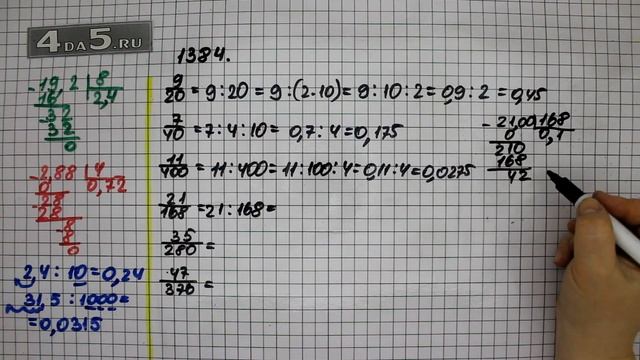 4DA5.RU
1384.
9/20 = 9:20 = 9:(2·10) = 9:10:2 = 0,9:2 = 0,45
7/40 = 7:4:10 = 0,7:4 = 0,175
11/400 = 11:400 = 11:100:4 = 0,11:4 = 0,0275
21/168 = 21:168 =
35/280 =
47/376 =
-19,2 | 8
16 | 2,4
-32
32
0
-2,88 | 4
0 | 0,72
-28
28
-8
8
0
2,4:10 = 0,24
31,5:1000 =
= 0,0315
-21,00 | 168
0 | 0,1
210
168
42